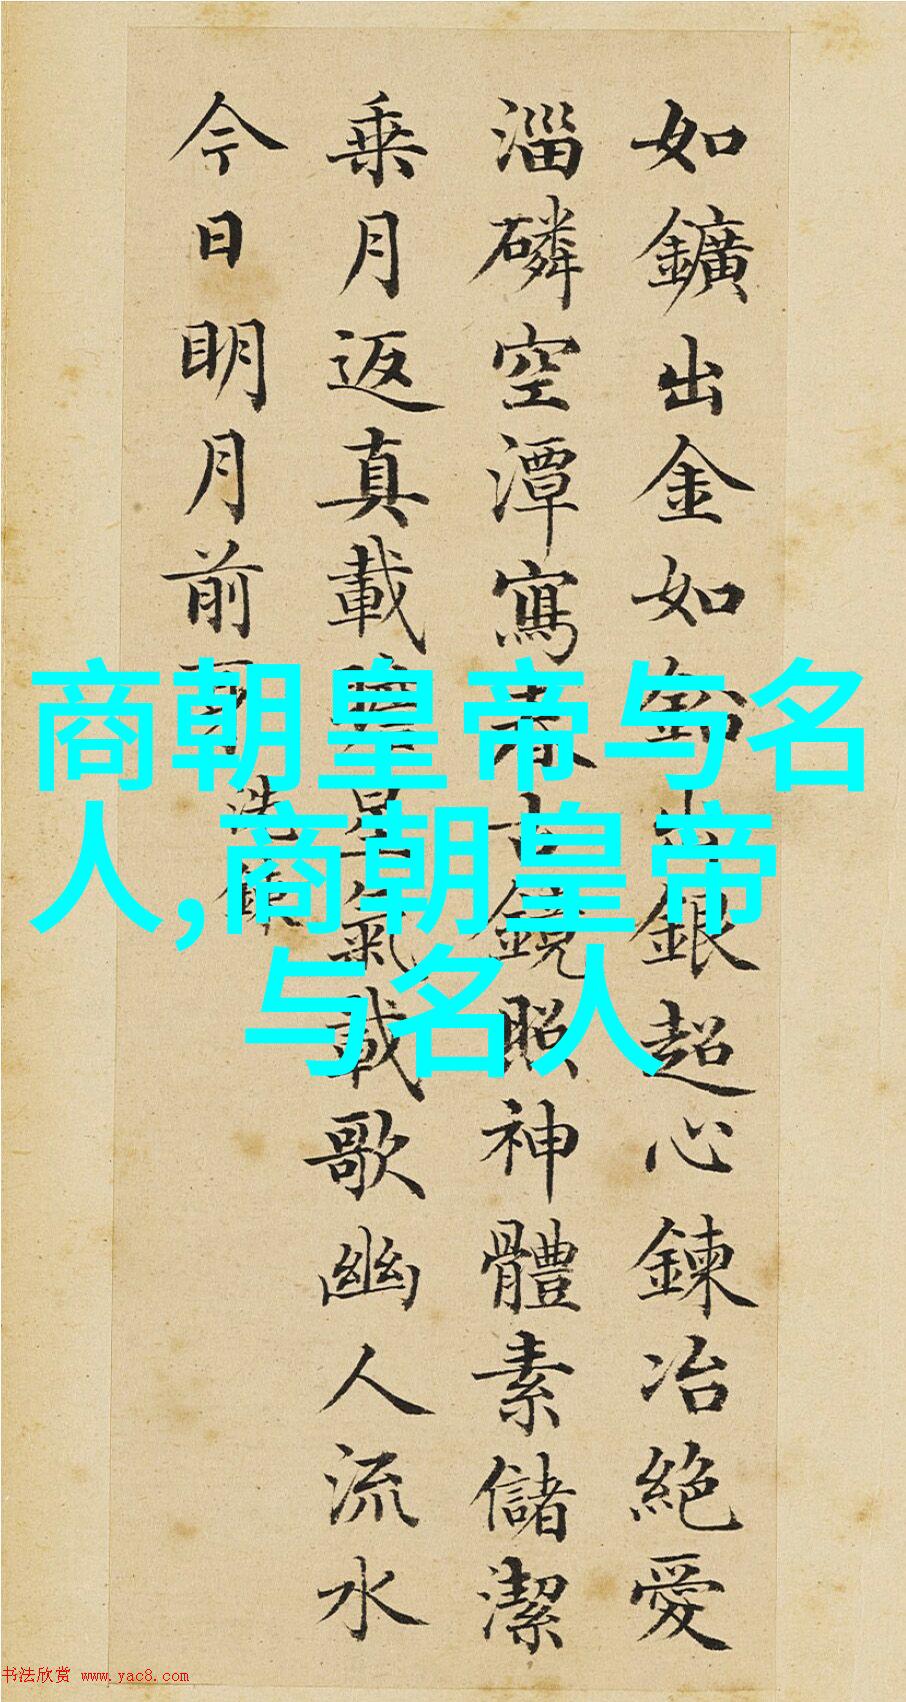 如鑛出金如鉛出銀超心鍊冶絕愛
淄磷空潭寫春古鏡照神體素儲潔
乘月返真載瞻星氣載歌幽人流水
今日明月前身
洗鍊
商朝皇帝与名
人,商朝皇帝
与名人
书法欣赏 www.yac8.com